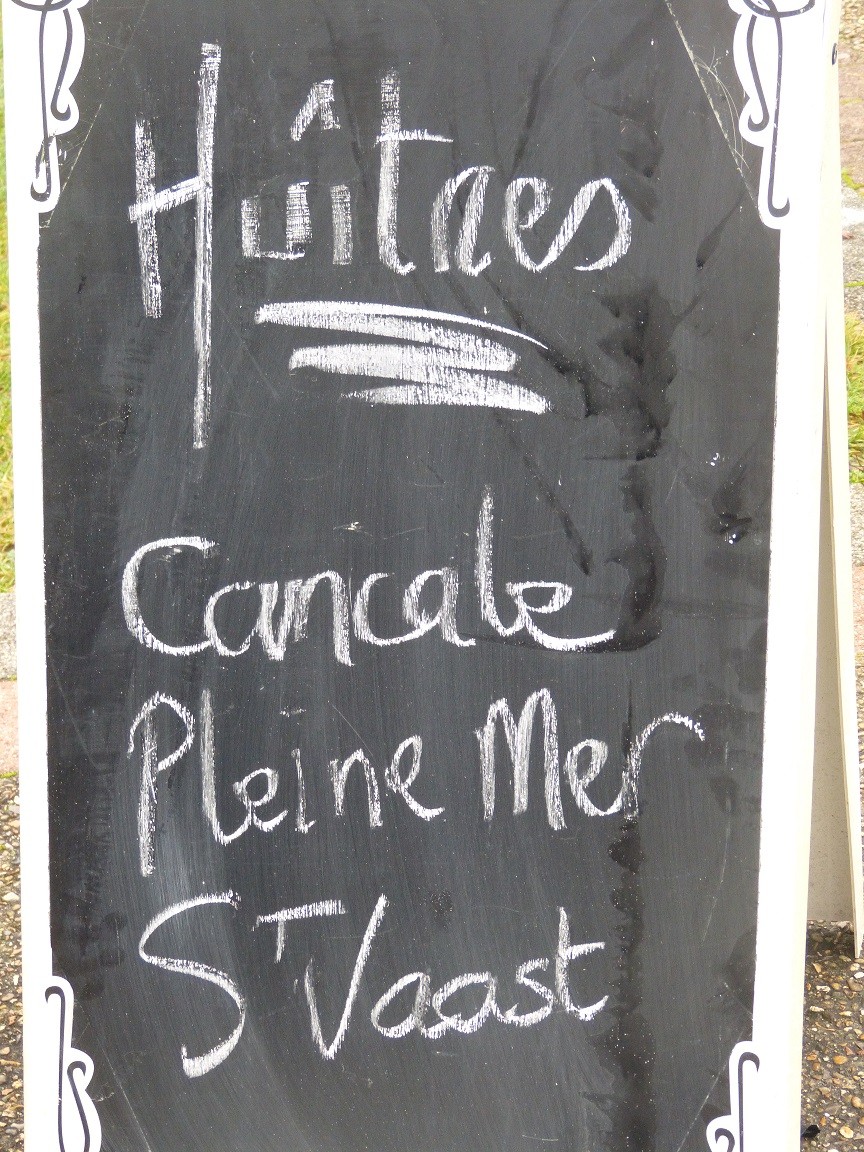 Huîtres
Cancale
Pleine Mer
ST Vaast